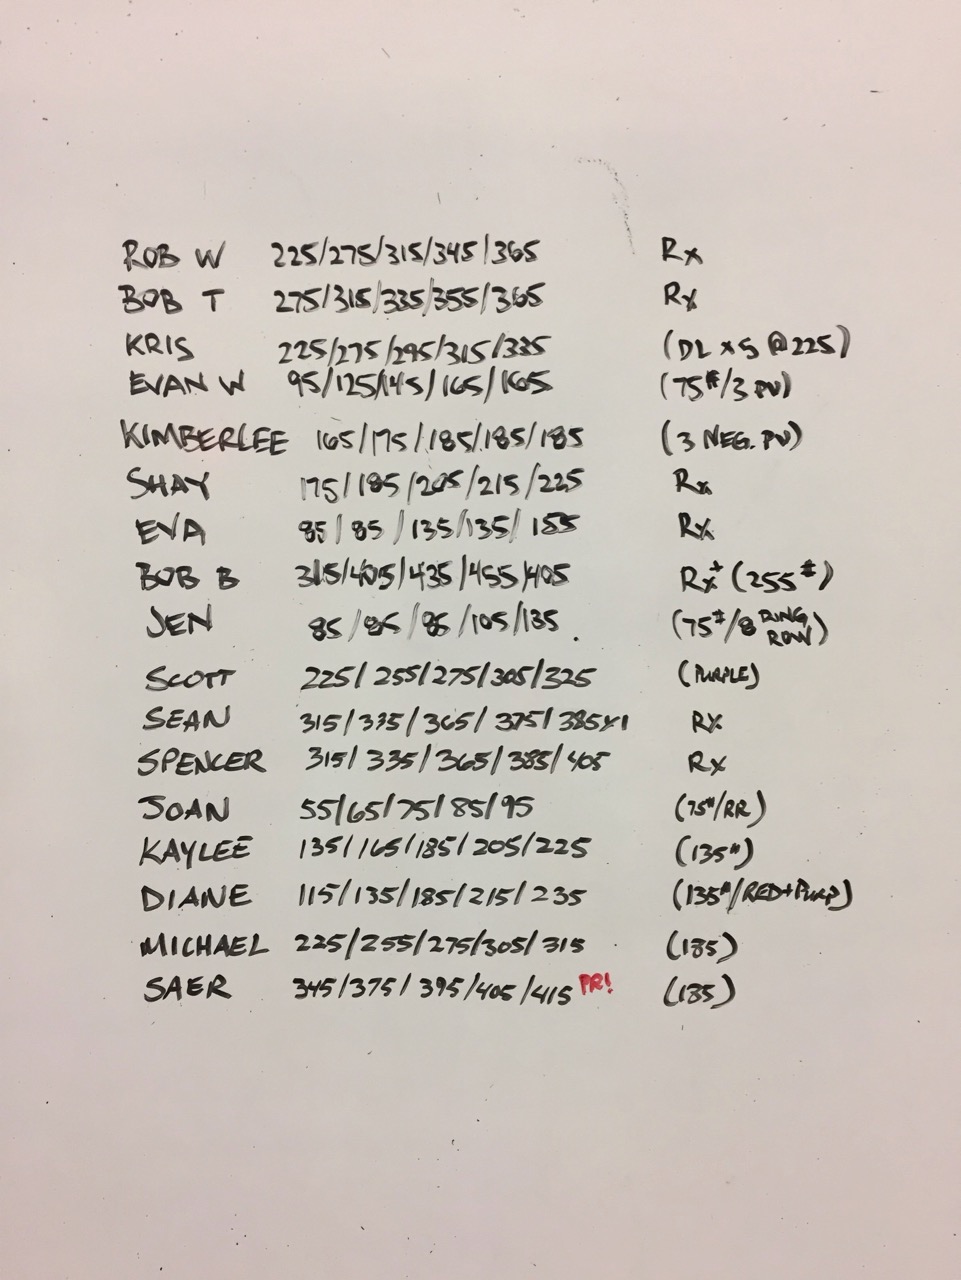 ROB W 225/275/315/345/365 Rx
BOB T 275/315/335/355/365 Rx
KRIS 225/275/295/315/335 (DL x 5 @ 225)
EVAN W 95/125/145/165/165 (75#/3 PU)
KIMBERLEE 165/175/185/185/185 (3 NEG. PU)
SHAY 175/185/205/215/225 Rx
EVA 85/85/135/135/155 Rx
BOB B 315/405/435/455/405 Rx+ (255#)
JEN 85/85/85/105/135 (75#/8 RING ROW)
SCOTT 225/255/275/305/325 (PURPLE)
SEAN 315/335/365/375/385x1 Rx
SPENCER 315/335/365/385/405 Rx
JOAN 55/65/75/85/95 (75#/RR)
KAYLEE 135/165/185/205/225 (135#)
DIANE 115/135/185/215/235 (135#/RED+PURP)
MICHAEL 225/255/275/305/315 (185)
SAER 345/375/395/405/415 PR! (185)